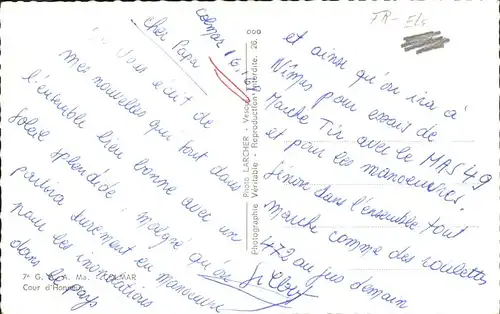 TR-Els
Colmar 16.
Cher Papa
Je vous écrit de
mes nouvelles qui tout dans
l'ensemble bien bonne avec un
soleil splendide malgré qu'on
partira durement en manœuvre
pour les inondations
dans le pays
et ainsi qu'on ira à
Nîmes pour essais de
Marche Tir avec le MAS 49
et pour les manoeuvres.
Sinon dans l'ensemble tout
marche comme des roulettes
472 au jus demain
Gilbert
Photo LARCHER - Veso
Photographie Véritable - Reproduction Interdite. 26.
7e G. A. Ma. COLMAR
Cour d'Honneur